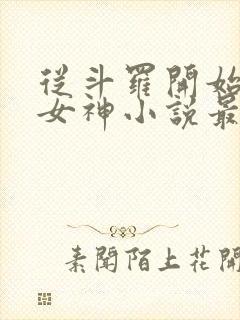 從斗羅開始
女神小說最
素聞陌上花開